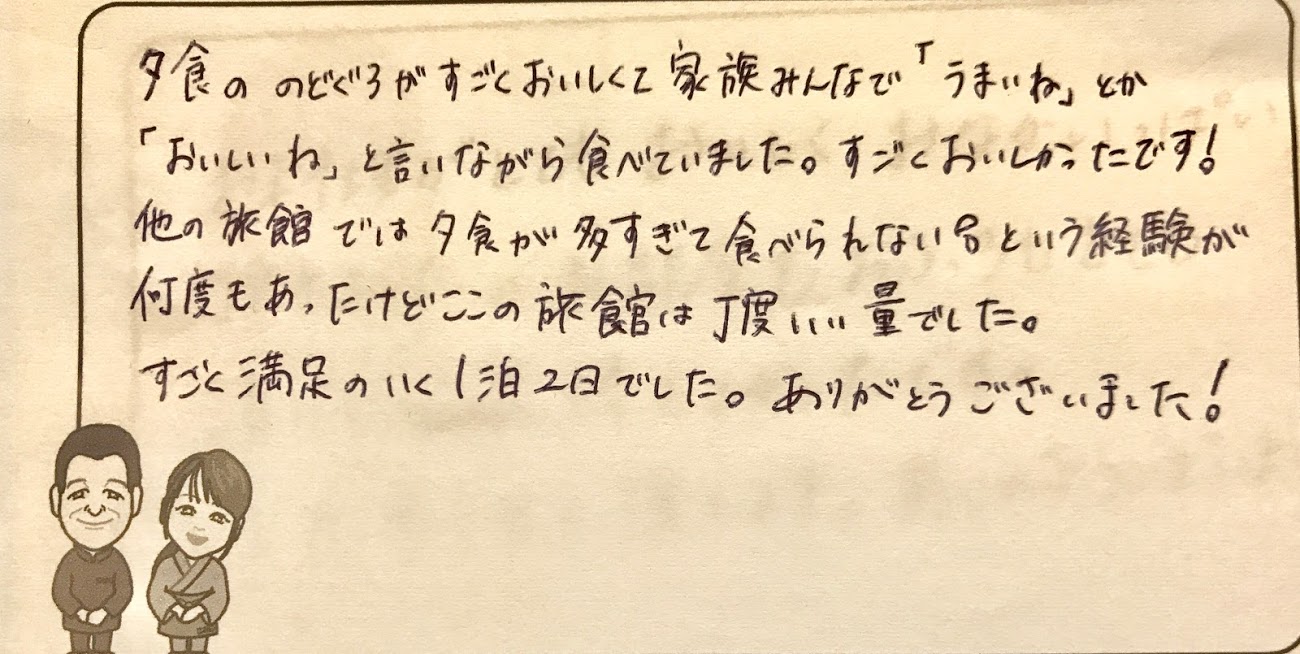 夕食の のどぐろがすごくおいしくて家族みんなで「うまいね」とか
「おいしいね」と言いながら食べていました。すごくおいしかったです!
他の旅館では夕食が多すぎて食べられないよという経験が
何度もあったけどここの旅館は丁度いい量でした。
すごく満足のいく1泊2日でした。ありがとうございました!